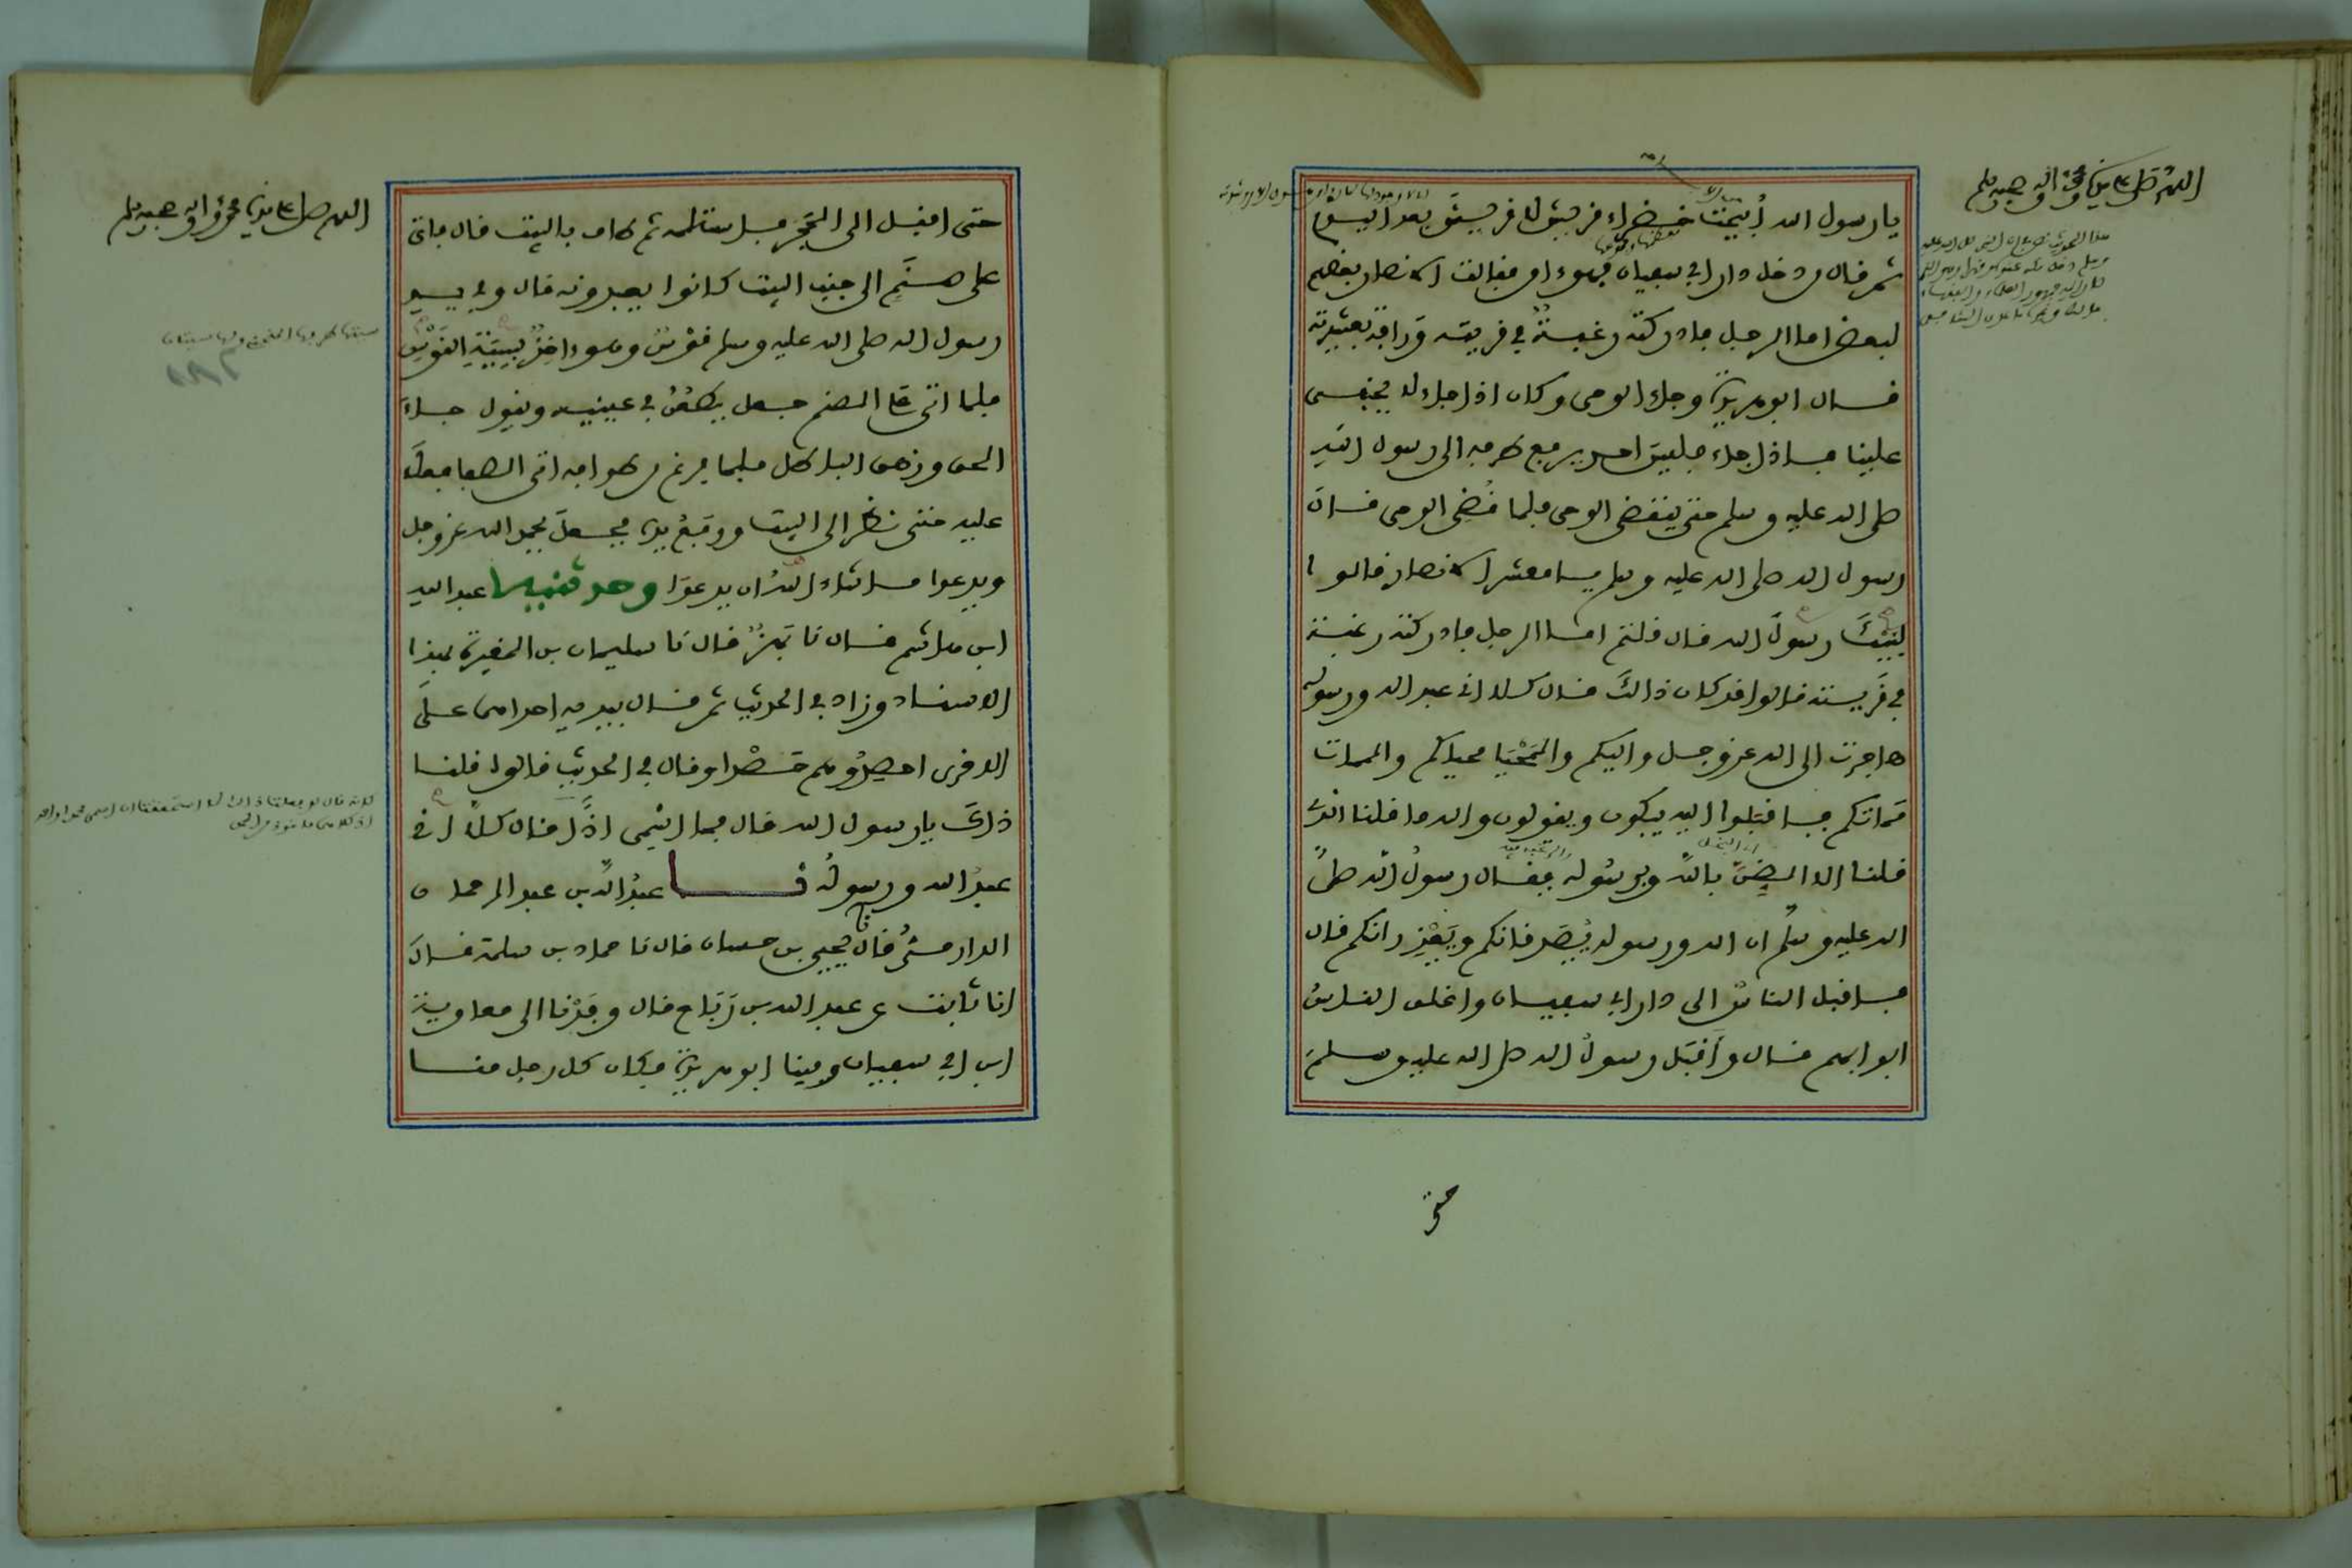 اللهم صل على سيدنا محمد واله وصحبه وسلم
يا رسول الله أبيحت خضراء قريش لا قريش بعد اليوم
ثم قال من دخل دار ابي سفيان فهو ءامن فقالت الانصار بعضهم
لبعض اما الرجل فادركته رغبة في قريته ورافة بعشيرته
قال ابو هريرة وجاء الوحي وكان اذا جاء لا يخفى
علينا فاذا جاء فليس احد يرفع طرفه الى رسول الله
صلى الله عليه وسلم حتى ينقضي الوحي فلما قضي الوحي قال
رسول الله صلى الله عليه وسلم يا معشر الانصار قالوا
لبيك رسول الله قال قلتم اما الرجل فادركته رغبة
في قريته قالوا قد كان ذالك قال كلا اني عبد الله ورسوله
هاجرت الى الله عز وجل واليكم والمحيا محياكم والممات
مماتكم فاقبلوا اليه يبكون ويقولون والله ما قلنا الذي
قلنا الا الضن بالله وبرسوله فقال رسول الله صلى
الله عليه وسلم ان الله ورسوله يصدقانكم ويعذرانكم قال
فاقبل الناس الى دار ابي سفيان واغلق الناس
ابوابهم قال واقبل رسول الله صلى الله عليه وسلم
حتى
اللهم صل على سيدنا محمد واله وصحبه وسلم
حتى اقبل الى الحجر فاستلمه ثم طاف بالبيت قال فاتى
على صنم الى جنب البيت كانوا يعبدونه قال وفي يد
رسول الله صلى الله عليه وسلم قوس وهو ءاخذ بسية القوس
فلما اتى على الصنم جعل يطعن في عينيه ويقول جاء
الحق وزهق الباطل فلما فرغ من طوافه اتى الصفا فعلا
عليه حتى نظر الى البيت ورفع يديه فجعل يحمد الله عز وجل
ويدعوا ما شاء الله ان يدعوا وحدثنيه عبد الله
ابن هاشم قال نا بهز قال نا سليمان بن المغيرة بهذا
الاسناد وزاد في الحديث ثم قال بيديه احداهما على
الاخرى احصدوهم حصدا وقال في الحديث قالوا قلنا
ذاك يا رسول الله قال فما اسمي اذا قال كلا اني
عبد الله ورسوله نا عبد الله بن عبد الرحمان
الدارمي قال نا يحيى بن حسان قال نا حماد بن سلمة قال
انا ثابت عن عبد الله بن رباح قال وفدنا الى معاوية
ابن ابي سفيان وفينا ابو هريرة فكان كل رجل منا